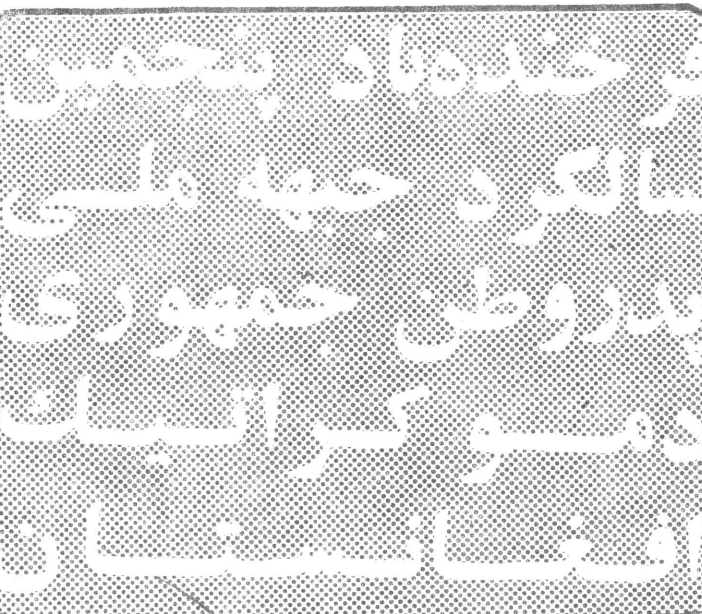 فرخنده باد پنجمین
سالگرد جبهه ملی
پدروطن جمهوری
دموکراتیک
افغانستان